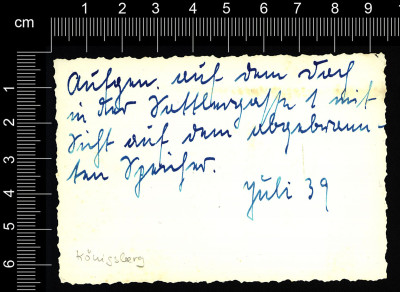 cm 1 2 3 4 5 6 7 8 9
1
2
3
4
5
6
Aufgen. auf dem Dach
in der Sattlergasse 1 mit
Sicht auf dem abgebrann-
ten Speicher.
Juli 39
Königsberg